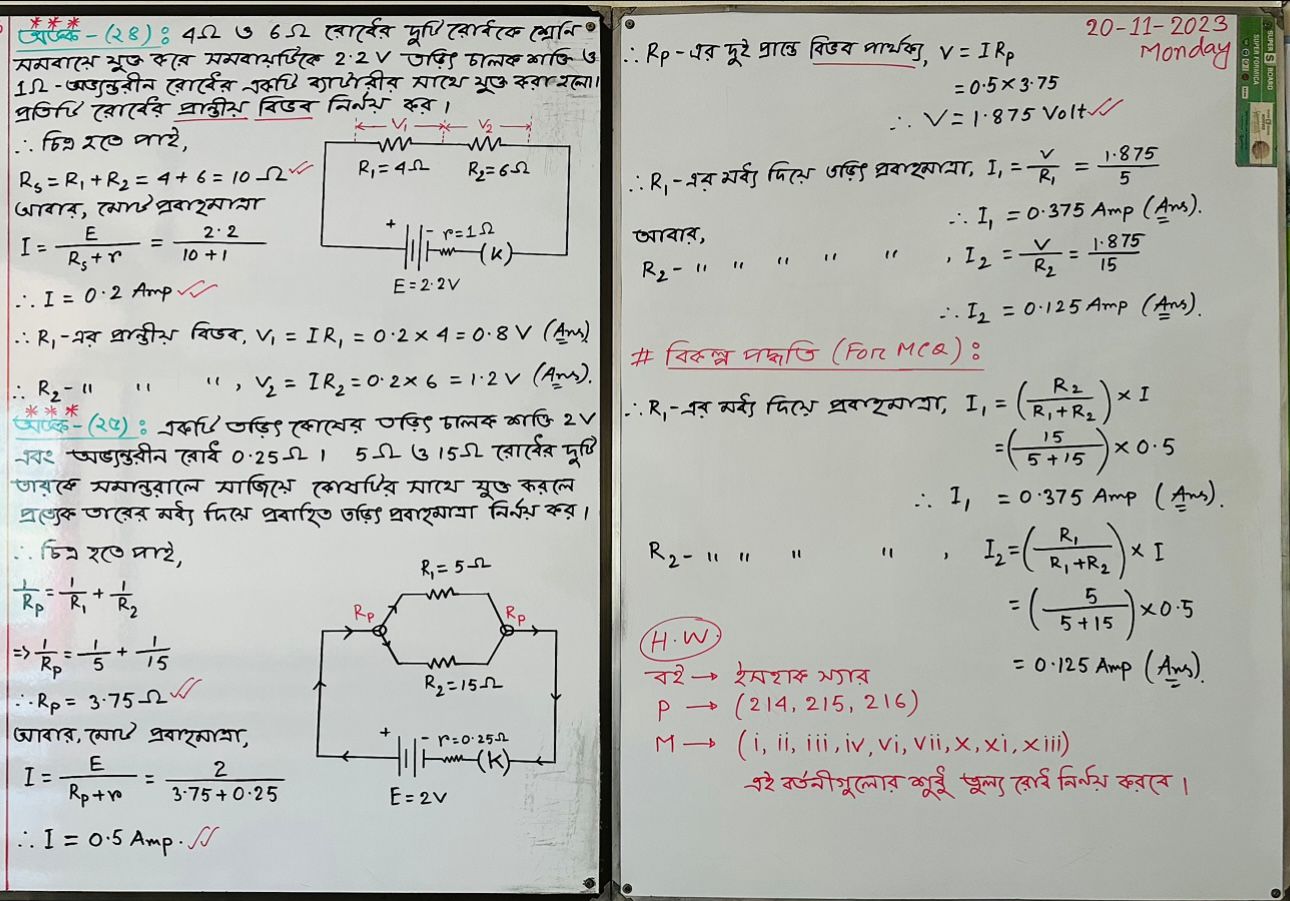 ***
অংক-(২৪): 4Ω ও 6Ω রোধের দুটি রোধকে শ্রেণি
সমবায়ে যুক্ত করে সমবায়টিকে 2.2V তড়িৎ চালক শক্তি ও
1Ω-অভ্যন্তরীন রোধের একটি ব্যাটারীর সাথে যুক্ত করা হলো।
প্রতিটি রোধের প্রান্তীয় বিভব নির্ণয় কর।
∴ চিত্র হতে পাই,
Rs = R₁ + R₂ = 4 + 6 = 10 Ω
আবার, মোট প্রবাহমাত্রা
I = E/(Rs + r) = 2.2/(10 + 1)
∴ I = 0.2 Amp
V₁ V₂
R₁ = 4Ω R₂ = 6Ω
+ - r = 1Ω
(K)
E = 2.2V
∴ R₁-এর প্রান্তীয় বিভব, V₁ = IR₁ = 0.2 × 4 = 0.8 V (Ans)
∴ R₂- " " ", V₂ = IR₂ = 0.2 × 6 = 1.2 V (Ans).
***
অংক-(২৫): একটি তড়িৎ কোষের তড়িৎ চালক শক্তি 2V
এবং অভ্যন্তরীন রোধ 0.25Ω। 5Ω ও 15Ω রোধের দুটি
তারকে সমান্তরালে সাজিয়ে কোষটির সাথে যুক্ত করলে
প্রত্যেক তারের মধ্য দিয়ে প্রবাহিত তড়িৎ প্রবাহমাত্রা নির্ণয় কর।
∴ চিত্র হতে পাই,
1/Rp = 1/R₁ + 1/R₂
=> 1/Rp = 1/5 + 1/15
∴ Rp = 3.75 Ω
আবার, মোট প্রবাহমাত্রা,
I = E/(Rp + r) = 2/(3.75 + 0.25)
∴ I = 0.5 Amp.
R₁ = 5Ω
Rp Rp
R₂ = 15Ω
+ - r = 0.25Ω
(K)
E = 2V
20-11-2023
Monday
∴ Rp-এর দুই প্রান্তে বিভব পার্থক্য, V = IRp
= 0.5 × 3.75
∴ V = 1.875 Volt
∴ R₁-এর মধ্য দিয়ে তড়িৎ প্রবাহমাত্রা, I₁ = V/R₁ = 1.875/5
∴ I₁ = 0.375 Amp (Ans).
আবার,
R₂- " " " " ", I₂ = V/R₂ = 1.875/15
∴ I₂ = 0.125 Amp (Ans).
# বিকল্প পদ্ধতি (For MCQ):
∴ R₁-এর মধ্য দিয়ে প্রবাহমাত্রা, I₁ = (R₂/(R₁ + R₂)) × I
= (15/(5 + 15)) × 0.5
∴ I₁ = 0.375 Amp (Ans).
R₂- " " " ", I₂ = (R₁/(R₁ + R₂)) × I
= (5/(5 + 15)) × 0.5
= 0.125 Amp (Ans).
H.W
বই → ইসহাক স্যার
P → (214, 215, 216)
M → (i, ii, iii, iv, vi, vii, x, xi, xiii)
এই বর্তনীগুলোর শুধু তুল্য রোধ নির্ণয় করবে।
SUPER BOARD
SUPER FORMICA